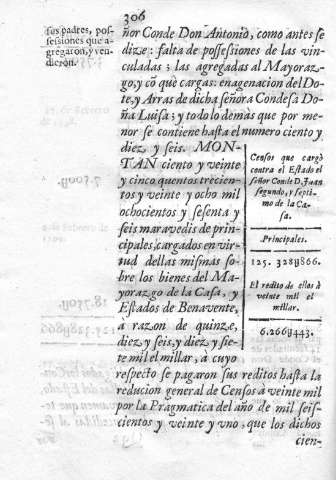 306
sus padres, pos-
sessiones que a-
gregaron, y ven-
dieron.
ñor Conde Don Antonio, como antes se
dize: falta de possessiones de las vin-
culadas; las agregadas al Mayoraz-
go, y cō què cargas: enagenacion del Do-
te, y Arras de dicha señora Condesa Do-
ña Luisa; y todo lo demàs que por me-
nor se contiene hasta el numero ciento y
diez y seis. MON-
TAN ciento y veinte
y cinco quentos trecien-
tos y veinte y ocho mil
ochocientos y sesenta y
seis maravedis de prin-
cipales, cargados en vir-
tud dellas mismas so-
bre los bienes del Ma-
yorazgo de la Casa, y
Estados de Benavente,
à razon de quinze,
diez y seis, y diez y sie-
te mil el millar, à cuyo
respecto se pagaron sus reditos hasta la
reducion general de Censos à veinte mil
por la Pragmatica del año de mil seis-
cientos y veinte y uno, que los dichos
cien-
Censos que cargò
contra el Estado el
señor Conde D. Juan
segundo, y septi-
mo de la Ca-
sa.
Principales.
125. 328U866.
El redito de ellos à
veinte mil el
millar.
6.266U443.